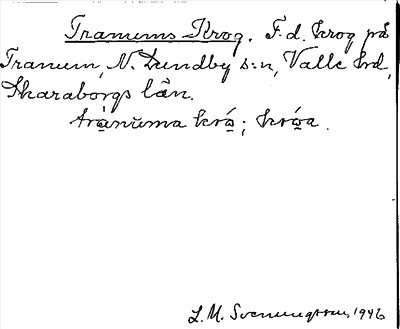 Tranums Krog. F.d. krog på
Tranum, N. Lundby s:n, Valle hrd,
Skaraborgs län.
tránuma kró̱; kró̱a.
L. M. Svenungsson, 1946